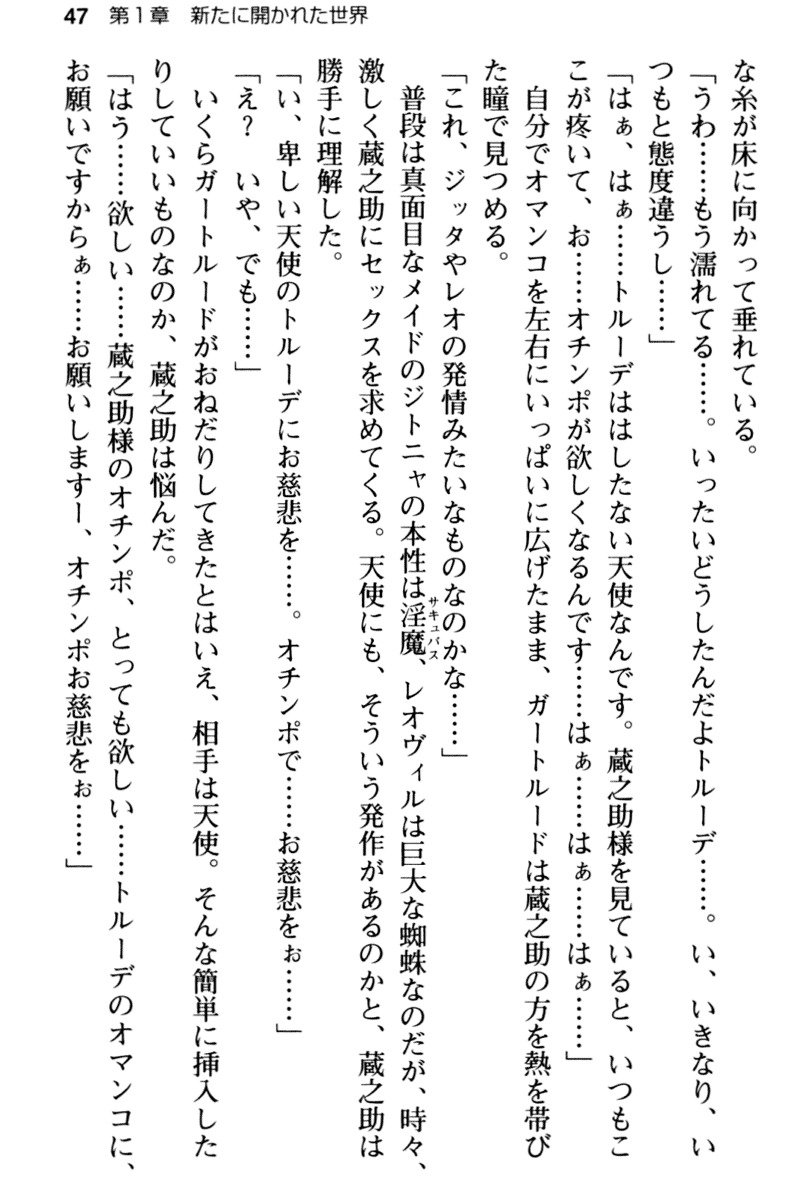 47 第1章 新たに開かれた世界
な糸が床に向かって垂れている。
「うわ……もう濡れてる……。いったいどうしたんだよトルーデ……。い、いきなり、い
つもと態度違うし……」
「はぁ、はぁ……トルーデははしたない天使なんです。蔵之助様を見ていると、いつもこ
こが疼いて、お……オチンポが欲しくなるんです……はぁ……はぁ……はぁ……」
自分でオマンコを左右にいっぱいに広げたまま、ガートルードは蔵之助の方を熱を帯び
た瞳で見つめる。
「これ、ジッタやレオの発情みたいなものなのかな……」
普段は真面目なメイドのジトニャの本性は淫魔、レオヴィルは巨大な蜘蛛なのだが、時々、
サキュバス
激しく蔵之助にセックスを求めてくる。天使にも、そういう発作があるのかと、蔵之助は
勝手に理解した。
「い、卑しい天使のトルーデにお慈悲を……。オチンポで……お慈悲をぉ……」
「え？　いや、でも……」
いくらガートルードがおねだりしてきたとはいえ、相手は天使。そんな簡単に挿入した
りしていいものなのか、蔵之助は悩んだ。
「はう……欲しい……蔵之助様のオチンポ、とっても欲しい……トルーデのオマンコに、
お願いですからぁ……お願いしますー、オチンポお慈悲をぉ……」